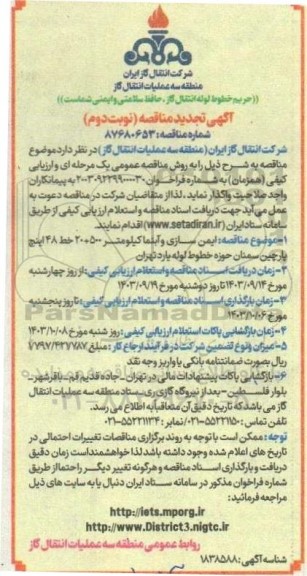 شرکت انتقال گاز ایران
منطقه سه عملیات انتقال گاز
((حریم خطوط لوله انتقال گاز، حافظ سلامتی و ایمنی شماست))
آگهی تجدید مناقصه (نوبت دوم)
شماره مناقصه: ۸۷۶۸۰۶۵۳
شرکت انتقال گاز ایران (منطقه سه عملیات انتقال گاز) در نظر دارد موضوع
مناقصه به شرح ذیل را به روش مناقصه عمومی یک مرحله ای و ارزیابی
کیفی (همزمان) به شماره فراخوان ۲۰۰۳۰۹۲۲۹۹۰۰۰۰۳۰ به پیمانکاران
واجد صلاحیت واگذار نماید. لذا از متقاضیان شرکت در مناقصه دعوت به
عمل می آید جهت دریافت اسناد مناقصه و استعلام ارزیابی کیفی از طریق
سامانه ستاد ایران (www.setadiran.ir) اقدام نمایند.
۱-موضوع مناقصه: ایمن سازی و آبنما کیلومتر ۵۰۰+۲۰ خط ۴۸ اینچ
پارچین سمنان حوزه خطوط لوله یارد تهران
۲-زمان دریافت اسناد مناقصه و استعلام ارزیابی کیفی: از روز چهارشنبه
مورخ ۱۴۰۳/۰۹/۱۴ تا روز دوشنبه مورخ ۱۴۰۳/۰۹/۱۹
۳-زمان بارگذاری اسناد مناقصه و استعلام ارزیابی کیفی: تا روز پنجشنبه
مورخ ۱۴۰۳/۱۰/۰۶
۴-زمان بازگشایی پاکات استعلام ارزیابی کیفی: روز شنبه مورخ ۱۴۰۳/۱۰/۰۸
۵-میزان و نوع تضمین شرکت در فرآیند ارجاع کار: مبلغ ۷٬۷۹۷٬۴۳۷٬۷۸۷
ریال بصورت ضمانتنامه بانکی یا واریز وجه نقد
۶-بازگشایی پاکات پیشنهادات مالی در تهران-جاده قدیم قم-باقرشهر-
بلوار فلسطین-بعد از نیروگاه گازی ری-ستاد منطقه سه عملیات انتقال
گاز می باشد که تاریخ دقیق آن متعاقبا به اطلاع می رسد.
تلفن تماس: ۵۵۲۲۱۱۵۰-۰۲۱ / نمابر: ۵۵۲۲۱۱۳۴-۰۲۱
توجه: ممکن است با توجه به روند برگزاری مناقصات تغییرات احتمالی در
تاریخ های اعلام شده وجود داشته باشد لذا خواهشمند است زمان دقیق
دریافت و بارگذاری اسناد مناقصه و هرگونه تغییر دیگر را حتما از طریق
شماره فراخوان مذکور در سامانه ستاد ایران دنبال یا به سایت های ذیل
مراجعه فرمائید:
http://iets.mporg.ir
http://www.District3.nigtc.ir
روابط عمومی منطقه سه عملیات انتقال گاز
شناسه آگهی: ۱۸۳۸۵۸۸